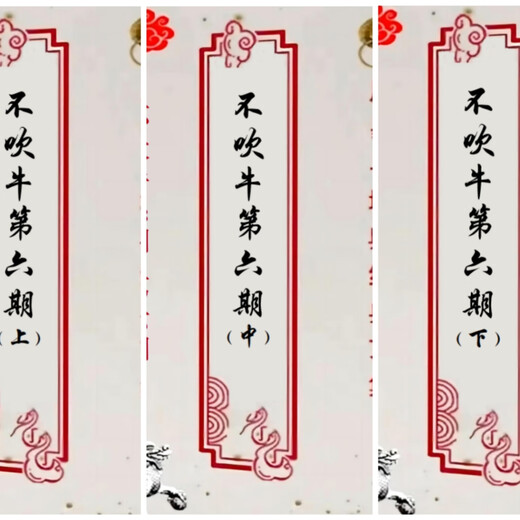 不吹牛第六期
（上）
不吹牛第六期
（中）
不吹牛第六期
（下）